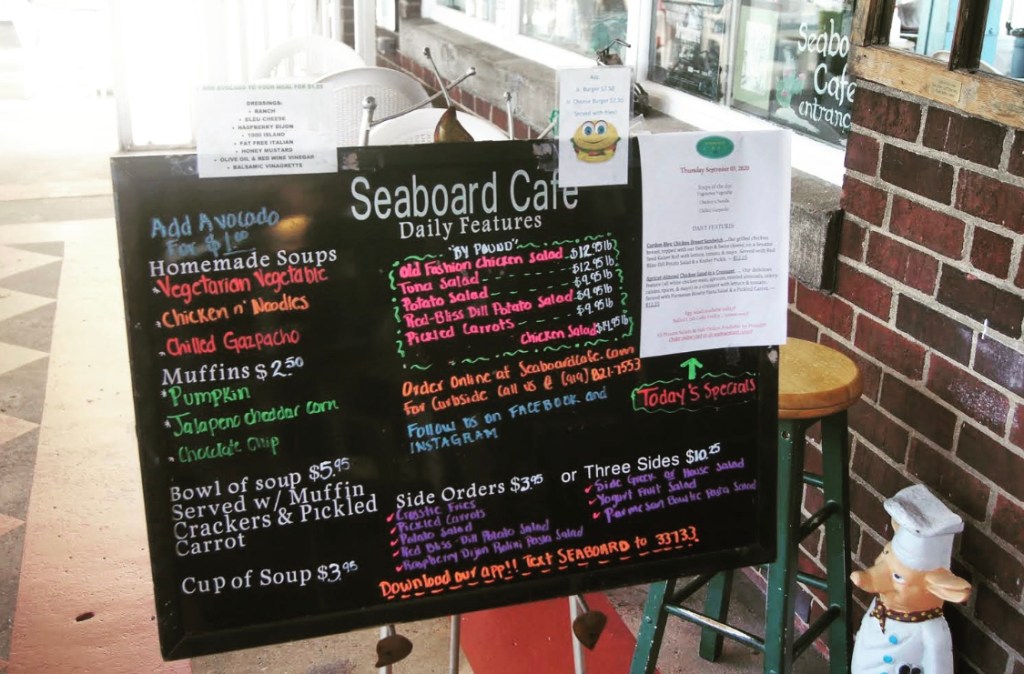 DRESSINGS:
• RANCH
• BLEU CHEESE
• RASPBERRY DIJON
• 1000 ISLAND
• FAT FREE ITALIAN
• HONEY MUSTARD
• OLIVE OIL & RED WINE VINEGAR
• BALSAMIC VINAIGRETTE
Served with Fries!
Seaboard Cafe
Daily Features
Add Avocado
For $1.00
Homemade Soups
• Vegetarian Vegetable
• Chicken n' Noodles
• Chilled Gazpacho
Muffins $2.50
• Pumpkin
• Jalapeno cheddar corn
• Chocolate Chip
Bowl of soup $5.95
Served w/ Muffin
Crackers & Pickled
Carrot
Cup of Soup $3.95
"BY POUND"
Old Fashion Chicken Salad $12.95 lb
Tuna Salad $12.95 lb
Potato Salad $9.95 lb
Red-Bliss Dill Potato Salad $9.95 lb
Pickled Carrots $9.95 lb
Chicken Salad $14.95 lb
Order Online at Seaboardcafe.com
For Curbside Call us @ (919) 821-7553
Follow us on FACEBOOK and
INSTAGRAM
Side Orders $3.95
✓ Crosstie Fries
✓ Pickled Carrots
✓ Potato Salad
✓ Red Bliss Dill Potato Salad
✓ Raspberry Dijon Rotini Pasta Salad
or Three Sides $10.25
✓ Side Greek or House Salad
✓ Yogurt Fruit Salad
✓ Parmesan Bowtie Pasta Salad
Download our app!! Text SEABOARD to 33733
Thursday September 03, 2020
DAILY FEATURES
Today's Specials
Seabo
Cafe
entranc